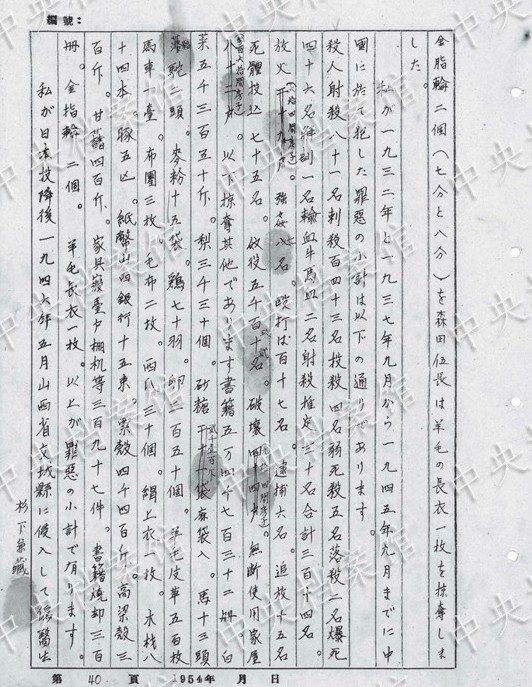 編號：
金指輪二個（七分と八分）を森田伍長は羊毛の長衣一枚を掠奪しま
した。
私が一九三二年と一九三七年九月から一九四五年九月までに中
國に於て犯した罪惡の小計は以下の通りであります。
殺人射殺八十一名刺殺百四十三名投殺四名弱死五名落殺二名爆死
四十六名 一名輸血牛馬血二名射殺推定三十名合計三百十四名。
放火 強姦 名。毆打は百十七名。逮捕六名。追放十五名
死體投込七十五名。奴役五千百十名。破壞四十四 無断使用家屋
八十二 以下掠奪其他であります書籍五万四千七百三十二册。白
菜五千三百五十斤。梨三千三十個。砂糖 袋麻袋入。馬十三頭
駱駝三頭。麥粉十五袋。鶏七十羽。卵二百五十個。羊毛皮革五百枚
馬車一臺。布團三枚。毛布二枚。西瓜三十個。絹上衣一枚。木材八
十四本。豚五匹。紙幣山西銀行十五束。粟穀四千四百斤。高粱穀三
百斤。甘藷四百斤。家具寢臺戸棚机等三百九十七件。書籍燒却三百
册。金指輪二個。羊毛長衣一枚。以上が罪惡の小計で有ります。
私が日本投降後一九四六年五月山西省文城縣に侵入して後醫生
杉下兼藏
第 40 頁 1954年 月 日
中央档案馆